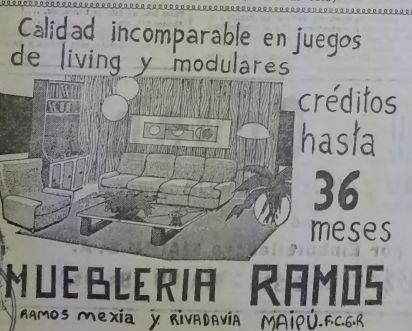 Calidad incomparable en juegos
de living y modulares
créditos
hasta
36
meses
MUEBLERIA RAMOS
RAMOS mexia y RIVADAVIA MAIPÚ.F.C.G.R